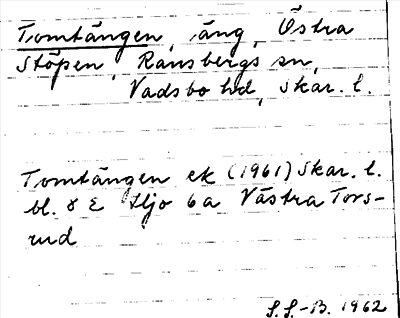 Tomtängen, äng, Östra
Stöpen, Ransbergs sn,
Vadsbo hd, Skar. l.
Tomtängen ek (1961) Skar. l.
bl. 8 E Hjo 6a Västra Tors-
rud
S.S.-B. 1962